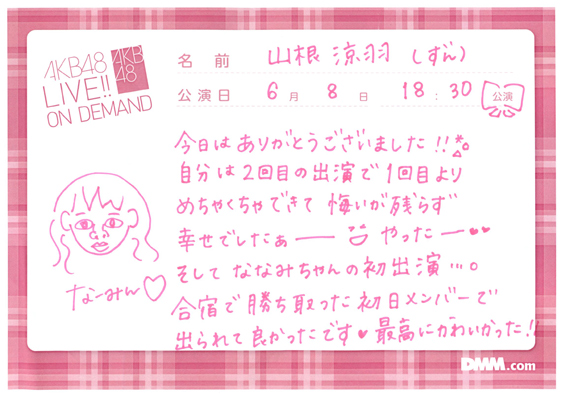 AKB48
LIVE!!
ON DEMAND
AKB
48
名前 山根 涼羽 (しずん)
公演日 6月 8日 18:30 公演
今日は ありがとうございました!!
自分は2回目の出演で1回目より
めちゃくちゃできて 悔いが残らず
幸せでしたぁー やったー
そして ななみちゃんの初出演…。
合宿で勝ち取った初日メンバーで
出られて良かったです♥最高にかわいかった!!
なーみん♡
DMM.com